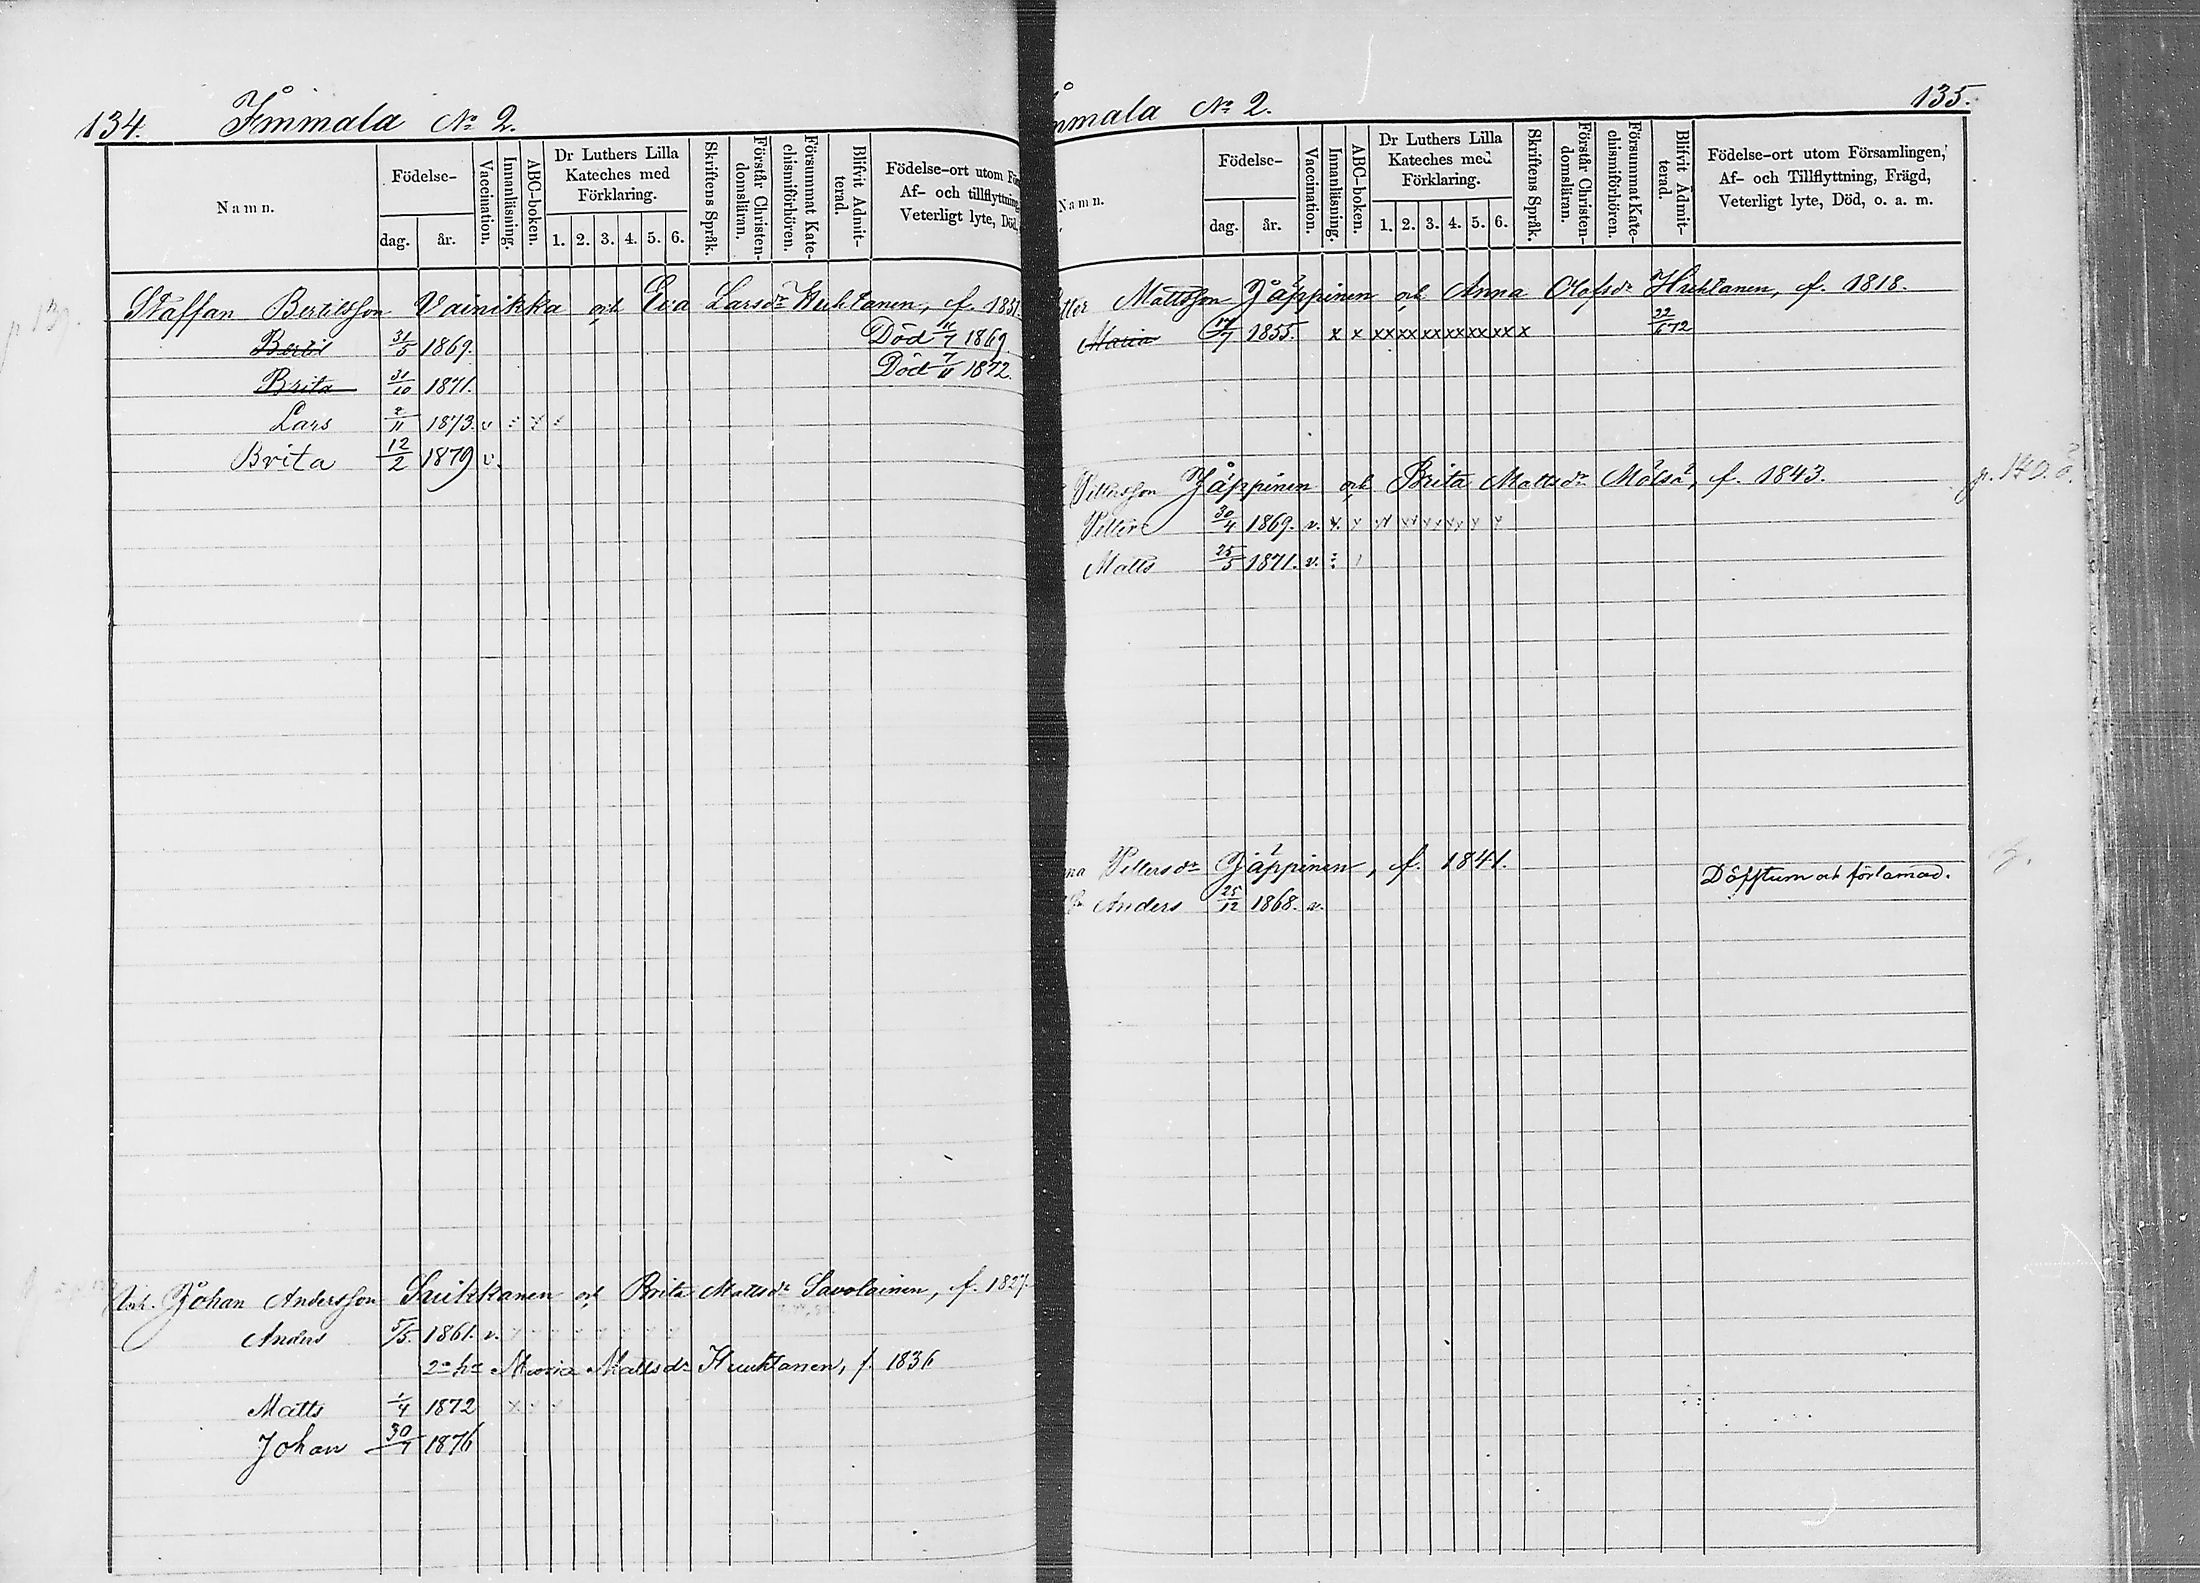 134. Immala № 2.
Namn.
Födelse-
dag. år.
Vaccination.
Innanläsning.
ABC-boken.
Dr Luthers Lilla
Kateches med
Förklaring.
1. 2. 3. 4. 5. 6.
Skriftens Språk.
Förstår Christen-
domsläran.
Försummat Kate-
chismiförhören.
Blifvit Admit-
terad.
Födelse-ort utom För
Af- och tillflyttning
Veterligt lyte, Död,
p 139.
Staffan Bertilsson Vainikka och Eva Larsdr Huhtanen, f. 1851.
Bertil 31/5 1869. Död 11/7 1869
Brita 31/10 1871. Död 7/11 1872.
Lars 2/11 1873. v
Brita 12/2 1879 v.
Johan Andersson Suikkanen och Brita Mattsdr Savolainen, f. 1827.
Anders 5/5. 1861. v.
2a h: Maria Mattsdr Huuhtanen, f. 1836
Matts 1/4 1872 x
Johan 30/7 1876
mmala № 2. 135.
Namn.
Födelse-
dag. år.
Vaccination.
Innanläsning.
ABC-boken.
Dr Luthers Lilla
Kateches med
Förklaring.
1. 2. 3. 4. 5. 6.
Skriftens Språk.
Förstår Christen-
domsläran.
Försummat Kate-
chismiförhören.
Blifvit Admit-
terad.
Födelse-ort utom Församlingen,
Af- och Tillflyttning, Frägd,
Veterligt lyte, Död, o. a. m.
tter Mattsson Jäppinen och Anna Olofsdr Huhtanen, f. 1818.
Maria 17/7 1855. x x xx xx xx xx xx xx x 22/6 72
Pettersson Jäppinen och Brita Mattsdr Mölsä, f. 1843. p. 140.
Petter 30/4 1869. v. x x
Matts 25/5 1871. v.
na Pettersdr Jäppinen, f. 1841. Döfstum och förlamad.
Anders 25/12 1868. v.